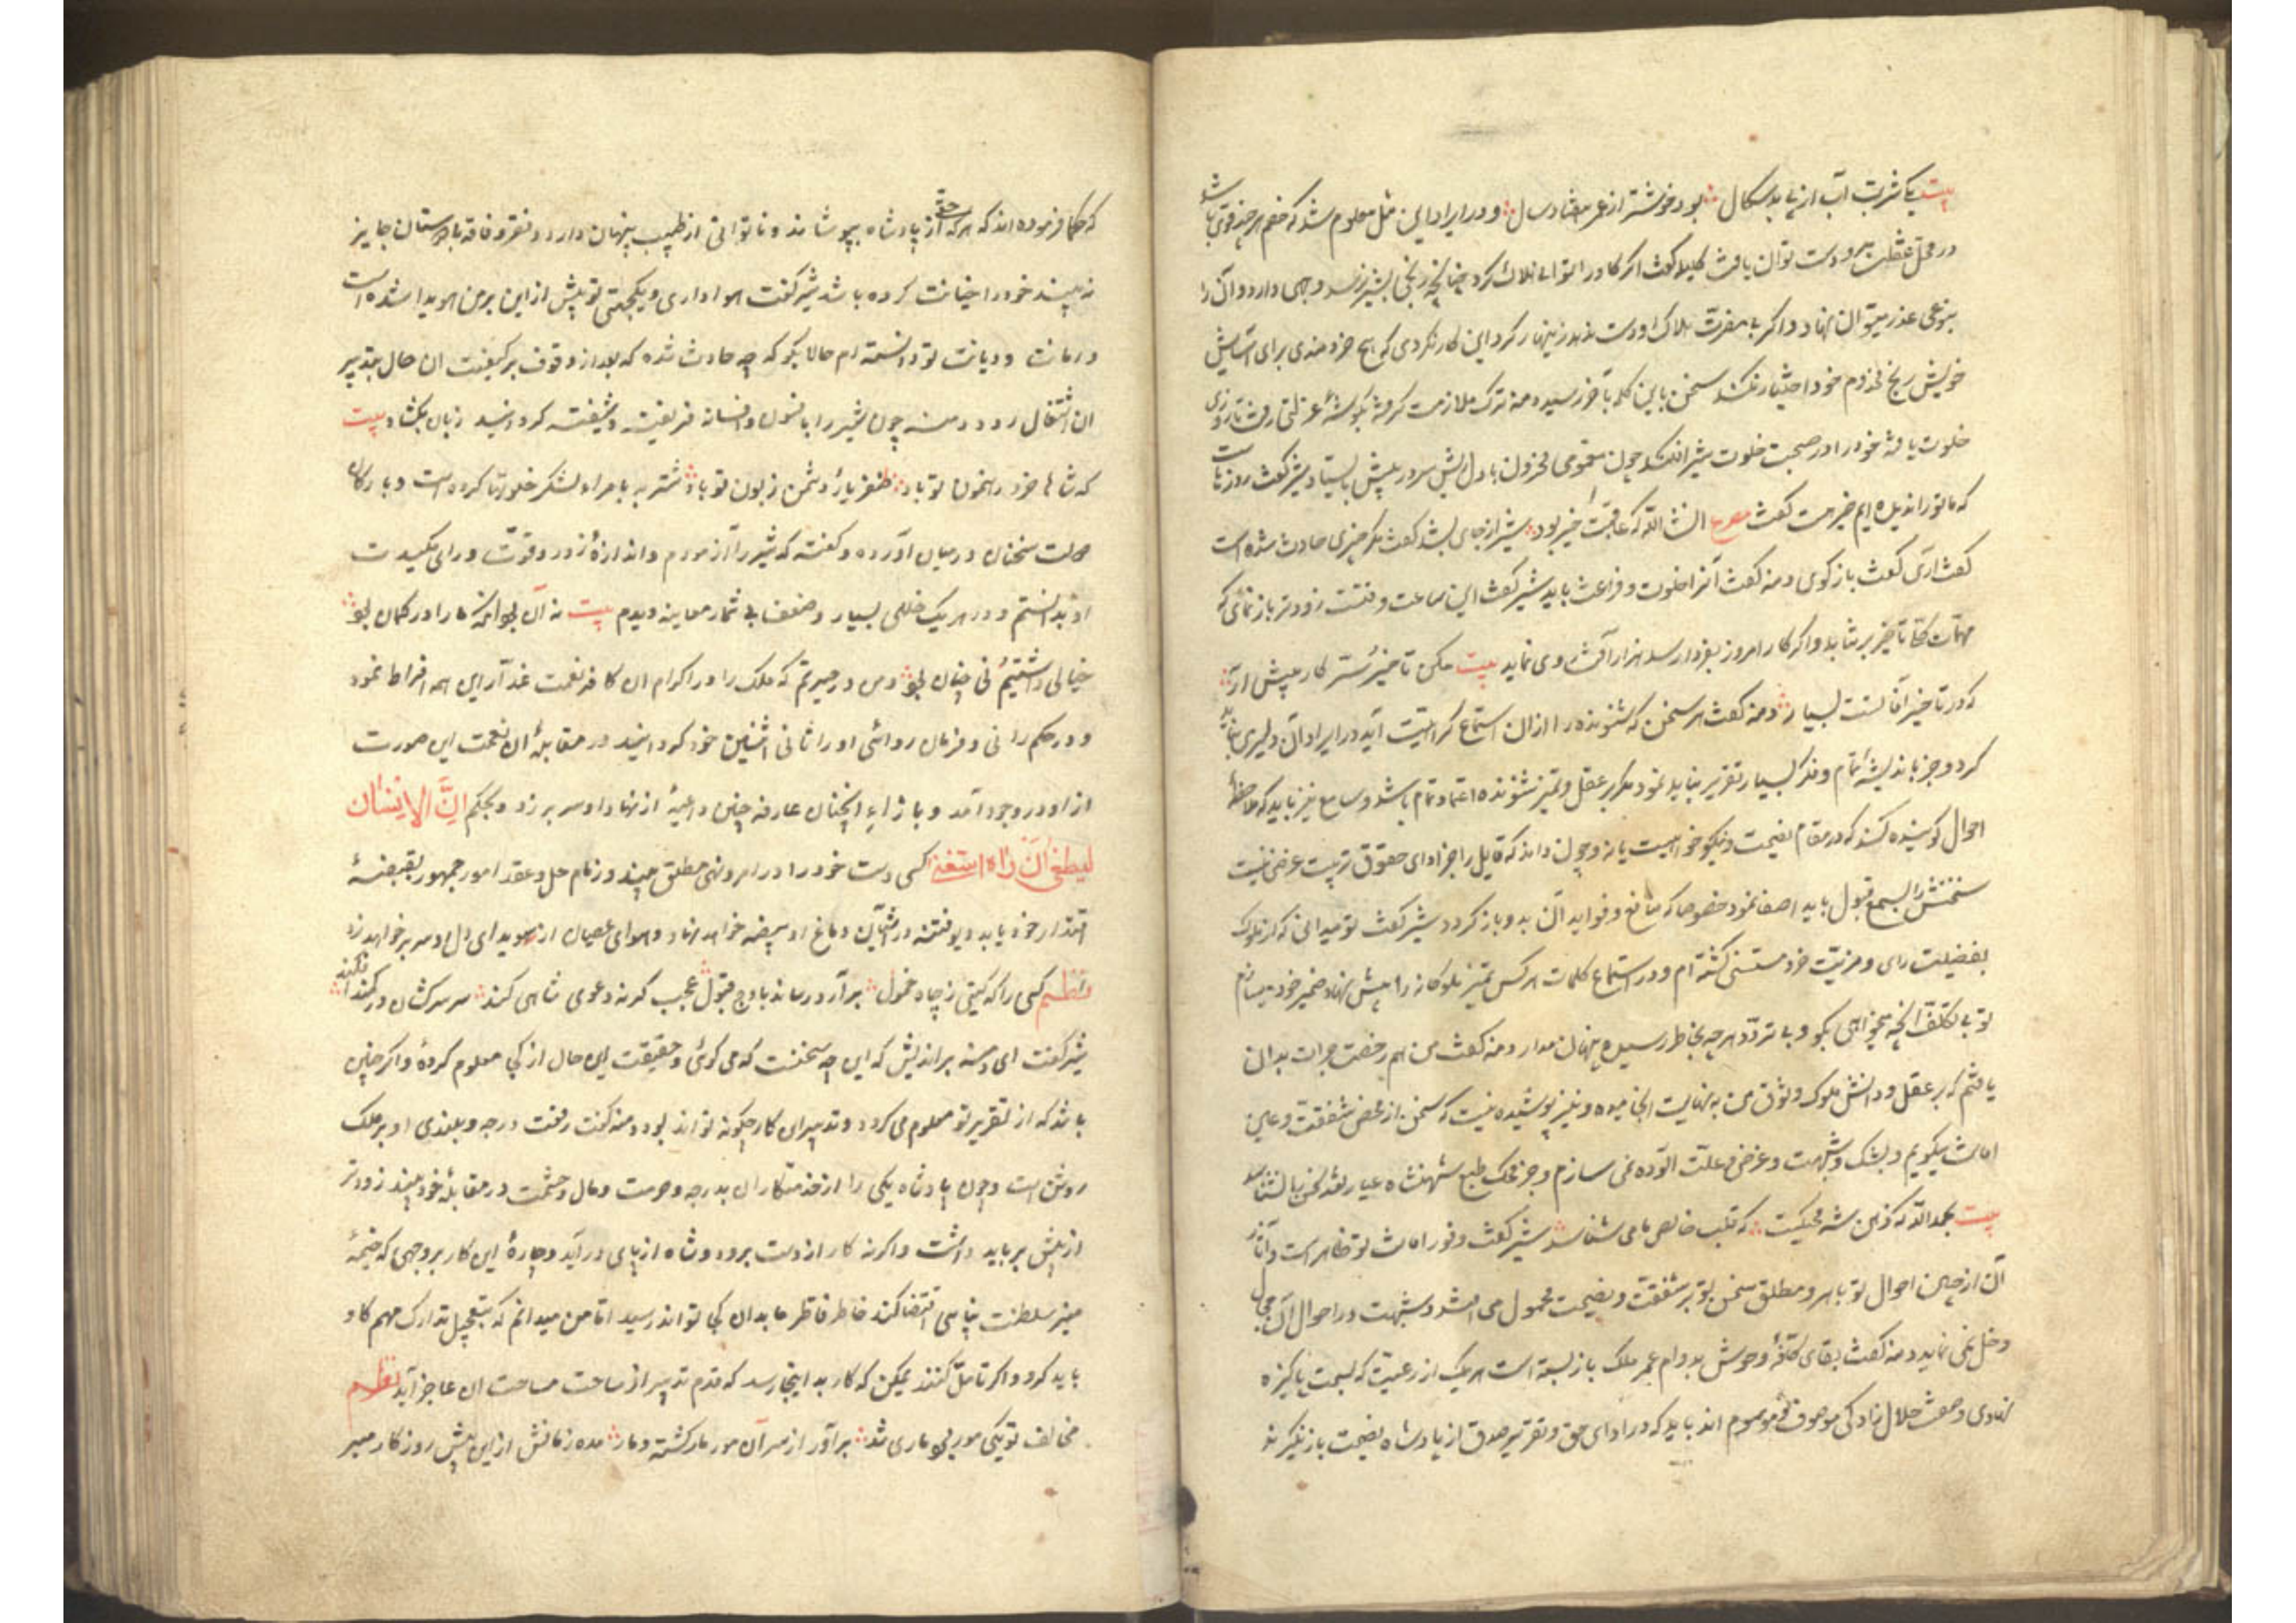 بیت یک شربت آب از پی بدسکال بود خوشتر از عمر هفتاد سال و در ایراد این مثل معلوم شد که خصم هر چند قوی باشد
در محل غفلت برو دست توان یافت کلیله گفت اگر گاو را توانی هلاک کرد چنانچه رنجی بشیر نرسد وجهی دارد و آن را
بنوعی عذر میتوان نهاد و اگر بی مضرت هلاک او دست ندهد زینهار کرد این کار نگردی که هیچ خردمندی برای آسایش
خویش رنج مخدوم خود اختیار نکند سخن باین کلمه بآخر رسید دمنه ترک ملازمت گرفته بگوشه عزلتی رفت تا روزی
خلوت یافته خود را در صحبت خلوت شیر افکند چون مغمومی محزون با دل ریش سر در پیش بایستاد شیر گفت روزهاست
که ما تو را ندیده ایم خیر هست گفت مصرع انشاالله که عاقبت خیر بود شیر از جای بشد گفت مگر چیزی حادث شده است
گفت آری گفت باز گوی دمنه گفت آنرا خلوت و فراغت باید شیر گفت این ساعت وقتست زودتر باز نمای که
مهمات تاخیر بر نتابد و اگر کار امروز بفردا رسد هزار آفت روی نماید بیت مکن تاخیر کار پیش آر
که در تاخیر آفاتست بسیار دمنه گفت هر سخن که شنونده را از ان استماع کراهیت آید در ایراد آن دلیری نباید
کرد و جز باندیشه تمام و فکر بسیار تقریر نباید نمود مگر بر عقل و تمیز شنونده اعتماد تمام باشد و سامع نیز باید که ملاحظه
احوال گوینده کند که در مقام نصیحت و نیکو خواهیست یا نه و چون داند که قایل را جز ادای حقوق تربیت غرضی نیست
سخنش را بسمع قبول باید اصغا نمود خصوصا که منافع و فواید آن بدو باز گردد شیر گفت تو میدانی که از ملوک
بفضیلت رای و مزیت خرد مستثنی گشته ام و در استماع کلمات هر کس تمیز ملوکانه را پیش نهاد ضمیر خود میسازم
تو بی تکلف آنچه میخواهی بگو و بی تردد هر چه بخاطر رسیده پنهان مدار دمنه گفت من هم رخصت جرات بدان
یافتم که بر عقل و دانش ملوک وثوق من به نهایت انجامیده و نیز پوشیده نیست که سخن از محض شفقت و عین
امانت میگویم و بشک و شبهت و غرض و علت آلوده نمی سازم و جز محک طبع شهنشاه عیار نقد سخن را نشناسد
بیت بحمدالله که ذهن شه محکیست که قلب خالص ما می شناسد شیر گفت وفور امانت تو ظاهر است و آثار
آن از جبین احوال تو باهر و مطلق سخن تو بر شفقت و نصیحت محمول می افتد و شبهت در احوال آن مجال
دخل نمی نماید دمنه گفت بقای کافه وحوش بدوام عمر ملک باز بسته است هر یک از رعیت که بسمت پاکیزه
نهادی و صفت حلال زادگی موصوف و موسوم اند باید که در ادای حق و تقریر صدق از پادشاه نصیحت باز نگیرند
که حکما فرموده اند که هر که حق از پادشاه بپوشاند و ناتوانی از طبیب پنهان دارد و فقر و فاقه با دوستان جایز
نه بیند خود را خیانت کرده باشد شیر گفت هواداری و یکجهتی تو پیش از این برمن هویدا شده است
و امانت و دیانت تو دانسته ام حالا بگو که چه حادث شده که بعد از وقوف بر کیفیت ان حال بتدبیر
ان اشتغال رود دمنه چون شیر را بافسون و افسانه فریفته و شیفته گردانید زبان بگشاد بیت
که شاها خرد رهنمون تو باد ظفر یار و دشمن زبون تو باد شنزبه با مراء لشکر خلوتها کرده است و با ارکان
دولت سخنان در میان آورده و گفته که شیر را آزمودم و اندازه زور و قوت و رای مکیدت
او بدانستم و در هر یک خللی بسیار و ضعف بی شمار معاینه دیدم بیت نه آن بود انکه ما را در گمان بود
خیالی داشتیم نی چنان بود و من در حیرتم که ملک را در اکرام ان کافر نعمت غدار این همه افراط نمود
و در حکم رانی و فرمان روائی او را ثانی اثنین خود گردانید در مقابله ان نعمت این صورت
از او در وجود آمد و با ازاء اینچنان عارفه چنین داعیه از نهاد او سر بر زد و بحکم اِنَّ الاِنسَان
لَیَطغی اَن رَّاهُ استَغنی کسی دست خود را در امر و نهی مطلق بیند و زمام حل و عقد امور جمهور بقبضه
اقتدار خود یابد دیو فتنه در آشیان دماغ او بیضه خواهد نهاد و هوای عصیان از سویدای دل او سر بر خواهد زد
نظم کسی را که گیتی ز چاه خمول برآرد رساند باوج قبول عجب گر نه دعوی شاهی کند سر سرکشان در کمند افکند
شیر گفت ای دمنه براندیش که این چه سخنست که می گوئی و حقیقت این حال از کی معلوم کرده و اگر چنین
باشد که از تقریر تو معلوم می گردد و تدبیر ان کار چگونه تواند بود دمنه گفت رفعت درجه و بلندی او بر ملک
روشن است و چون پادشاه یکی را از خدمتکاران بدرجه و حرمت و مال و حشمت در مقابله خود بیند زودتر
از پیش بر باید داشت و اگر نه کار از دست برود و شاه از پای در آید و چاره این کار بر وجهی که ضمیر
منیر سلطنت پناهی اقتضا کند خاطر فاتر ما بدان کی تواند رسید اما من میدانم که بتعجیل تدارک مهم گاو
باید کرد و اگر تامل کنند یمکن که کار به اینجا رسد که قدم تدبیر از ساحت مساحت ان عاجز آید نظم
مخالف تو یکی مور بود ماری شد برآور از سر آن مور مار گشته دمار مده زمانش از این پیش روزگار مبر